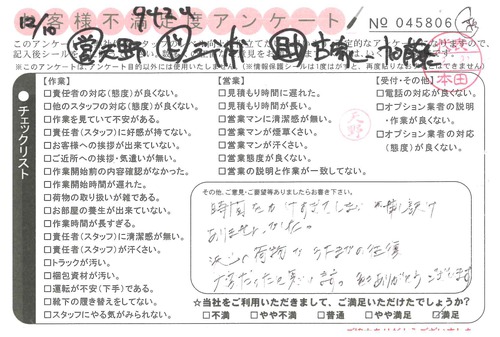 12/10
9424
お客様不満足度アンケート
No 045806
営 天野
助
本田
天野
チェックリスト
【作業】
□責任者の対応(態度)が良くない。
□他のスタッフの対応(態度)が良くない。
□作業を見ていて不安がある。
□責任者(スタッフ)に好感が持てない。
□お客様への挨拶が出来ていない。
□ご近所への挨拶・気遣いが無い。
□作業開始前の内容確認がなかった。
□作業開始時間が遅れた。
□荷物の取り扱いが雑である。
□お部屋の養生が出来ていない。
□作業時間が長すぎる。
□責任者(スタッフ)に清潔感が無い。
□責任者(スタッフ)が汗くさい。
□トラックが汚い。
□梱包資材が汚い。
□運転が不安(下手)である。
□靴下の履き替えをしてない。
□スタッフにやる気がみられない。
【営業】
□見積もり時間に遅れた。
□見積もり時間が長い。
□営業マンに清潔感が無い。
□営業マンが煙草くさい。
□営業マンが汗くさい。
□営業態度が良くない。
□営業の説明と作業が一致してない。
【受付・その他】
□電話の対応が良くない。
□オプション業者の説明
・作業が良くない。
□オプション業者の対応
(態度)が良くない。
その他、ご意見・ご要望等ありましたらお書き下さい。
時間をかけすぎてしまい 申し訳け
ありませんでした。
荷物
大変だったと思います。ありがとうございます
☆当社をご利用いただきまして、ご満足いただけたでしょうか?
□不満 □やや不満 □普通 □やや満足 ☑満足